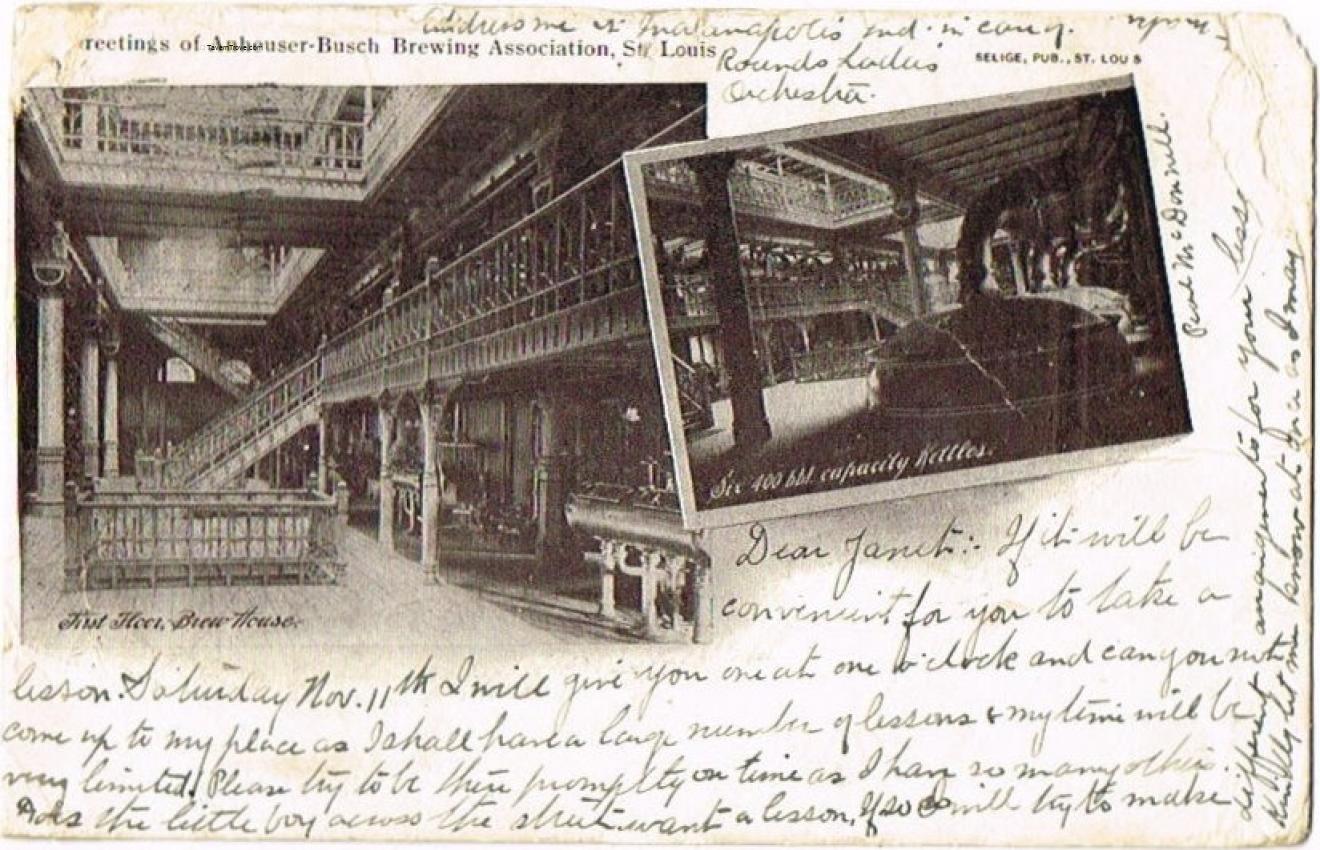 Address me at Indianapolis Ind. in care of
Rounds Ladies
Orchestra.
reetings of Anheuser-Busch Brewing Association, St. Louis
TavernTrove.com
SELIGE, PUB., ST. LOUIS
First Floor, Brew House.
Six 400 bbl. capacity Kettles.
Dear Janet:- If it will be
convenient for you to take a
lesson Saturday Nov. 11th I will give you one at one o'clock and can you not
come up to my place as I shall have a large number of lessons & my time will be
very limited. Please try to be there promptly on time as I have so many others.
Does the little boy across the street want a lesson, If so I will try to make
different arrangements for your less
Kindly let me know at once as I may
McDonnell.